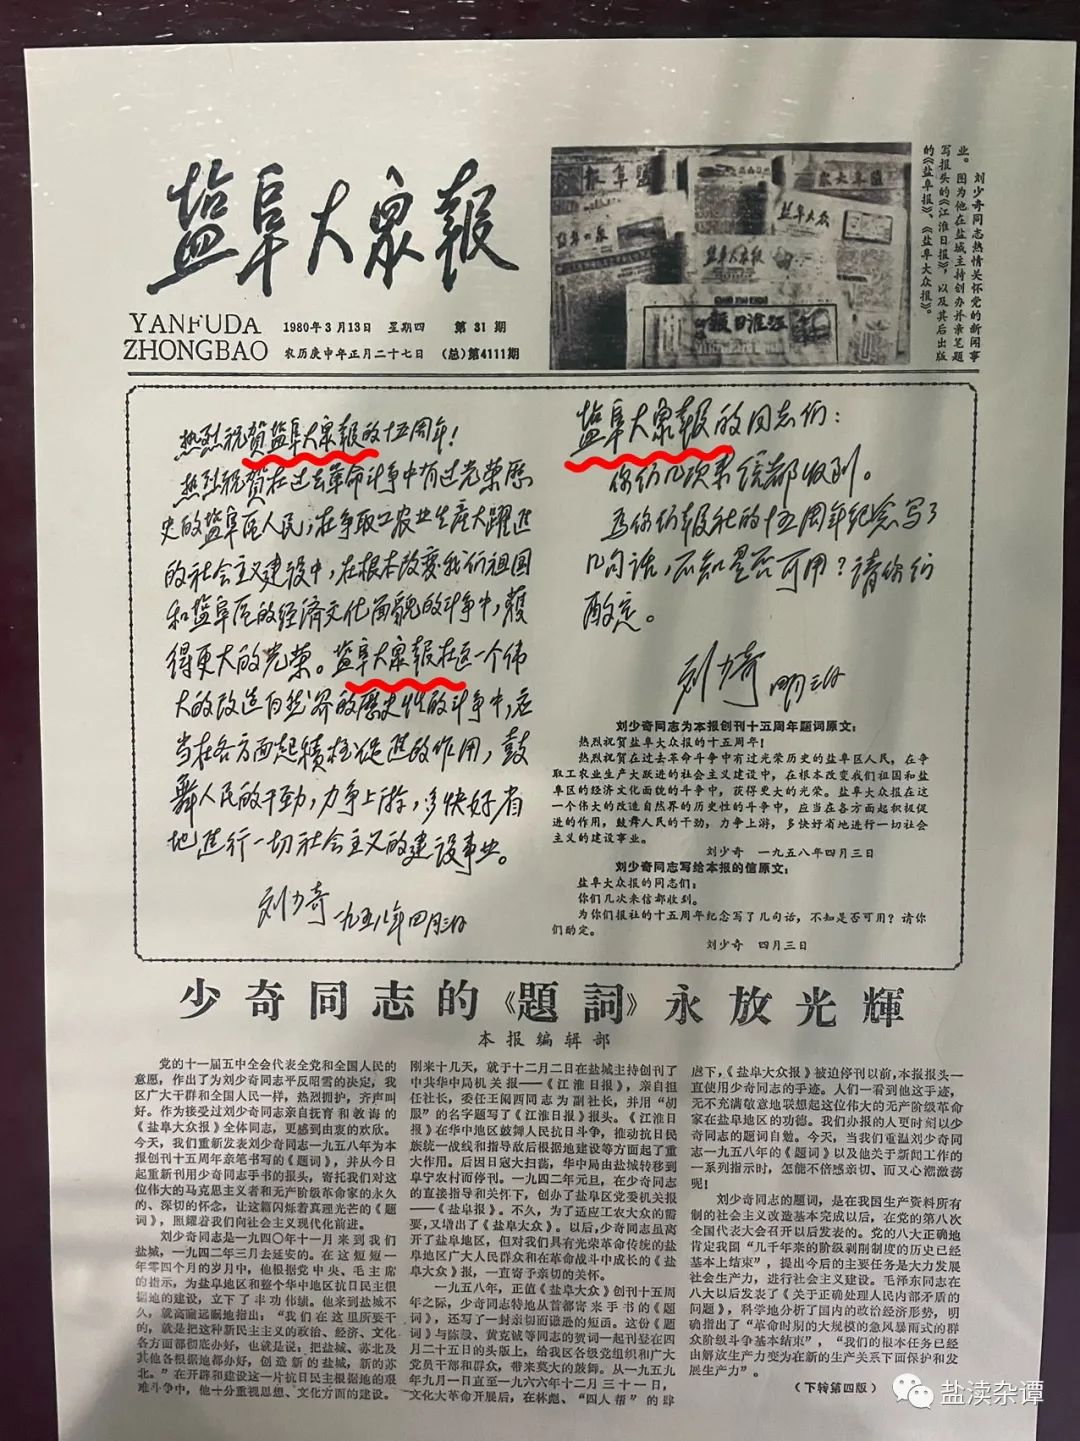 盐阜大众報
YANFUDA
ZHONGBAO
1980年3月13日 星期四 第31期
农历庚申年正月二十七日 (总)第4111期
刘少奇同志热情关怀党的新闻事
业。图为他在盐城主持创办并亲笔题
写报头的《江淮日报》，以及其后出版
的《盐阜报》、《盐阜大众报》。
热烈祝賀盐阜大众報的十五周年！
热烈祝賀在过去革命斗争中有过光荣历
史的盐阜区人民，在争取工农业生産大躍進
的社会主义建設中，在根本改变我们祖国
和盐阜区的经济文化面貌的斗争中，獲
得更大的光荣。盐阜大众報在这一个伟
大的改造自然界的歷史性的斗争中，应
当在各方面起積極促進的作用，鼓
舞人民的干劲，力争上游，多快好省
地進行一切社会主义的建設事业。
刘少奇 一九五八年四月三日
盐阜大众報的同志们：
你们几次来信都收到。
为你们報社的十五周年纪念写了
几句话，不知是否可用？请你们
酌定。
刘少奇 四月三日
刘少奇同志为本报创刊十五周年题词原文：
热烈祝贺盐阜大众报的十五周年！
热烈祝贺在过去革命斗争中有过光荣历史的盐阜区人民，在争
取工农业生产大跃进的社会主义建设中，在根本改变我们祖国和盐
阜区的经济文化面貌的斗争中，获得更大的光荣。盐阜大众报在这
一个伟大的改造自然界的历史性的斗争中，应当在各方面起积极促
进的作用，鼓舞人民的干劲，力争上游，多快好省地进行一切社会
主义的建设事业。
刘少奇 一九五八年四月三日
刘少奇同志写给本报的信原文：
盐阜大众报的同志们：
你们几次来信都收到。
为你们报社的十五周年纪念写了几句话，不知是否可用？请你
们酌定。
刘少奇 四月三日
少奇同志的《題詞》永放光輝
本报编辑部
党的十一届五中全会代表全党和全国人民的
意愿，作出了为刘少奇同志平反昭雪的决定，我
区广大干群和全国人民一样，热烈拥护，齐声叫
好。作为接受过刘少奇同志亲自抚育和教诲的
《盐阜大众报》全体同志，更感到由衷的欢欣。
今天，我们重新发表刘少奇同志一九五八年为本
报创刊十五周年亲笔书写的《题词》，并从今日
起重新刊用少奇同志手书的报头，寄托我们对这
位伟大的马克思主义者和无产阶级革命家的永久
的、深切的怀念，让这篇闪烁着真理光芒的《题
词》，照耀着我们向社会主义现代化前进。
刘少奇同志是一九四〇年十一月来到我们
盐城，一九四二年三月去延安的。在这短短一
年零四个月的岁月中，他根据党中央、毛主席
的指示，为盐阜地区和整个华中地区抗日民主根
据地的建设，立下了丰功伟绩。他来到盐城不
久，就高瞻远瞩地指出，“我们在这里所要干
的，就是把这种新民主主义的政治、经济、文化
各方面都彻底办好，也就是说，把盐城、苏北及
其他各根据地都办好，创造新的盐城，新的苏
北。”在开辟和建设这一片抗日民主根据地的艰
难斗争中，他十分重视思想、文化方面的建设。
刚来十几天，就于十二月二日在盐城主持创刊了
中共华中局机关报——《江淮日报》，亲自担
任社长，委任王阑西同志为副社长，并用“胡
服”的名字题写了《江淮日报》报头。《江淮日
报》在华中地区鼓舞人民抗日斗争，推动抗日民
族统一战线和指导敌后根据地建设等方面起了重
大作用。后因日寇大扫荡，华中局由盐城转移到
阜宁农村而停刊。一九四二年元旦，在少奇同志
的直接指导和关怀下，创办了盐阜区党委机关报
——《盐阜报》。不久，为了适应工农大众的需
要，又增出了《盐阜大众》。以后，少奇同志虽离
开了盐阜地区，但对我们具有光荣革命传统的盐
阜地区广大人民群众和在革命战斗中成长的《盐
阜大众》报，一直寄予亲切的关怀。
一九五八年，正值《盐阜大众》创刊十五周
年之际，少奇同志特地从首都寄来手书的《题
词》，还写了一封亲切而谦逊的短函。这份《题
词》与陈毅、黄克诚等同志的贺词一起刊登在四
月二十五日的头版上，给我区各级党组织和广大
党员干部和群众，带来莫大的鼓舞。从一九五九
年九月一日直至一九六六年十二月三十一日，
文化大革命开展后，在林彪、“四人帮”的肆
虐下，《盐阜大众报》被迫停刊以前，本报报头一
直使用少奇同志的手迹。人们一看到他这手迹，
无不充满敬意地联想起这位伟大的无产阶级革命
家在盐阜地区的功德。我们办报的人更时刻以少
奇同志的题词自勉。今天，当我们重温刘少奇同
志一九五八年的《题词》以及他关于新闻工作的
一系列指示时，怎能不倍感亲切、而又心潮激荡
呢！
刘少奇同志的题词，是在我国生产资料所有
制的社会主义改造基本完成以后，在党的第八次
全国代表大会召开以后发表的。党的八大正确地
肯定我国“几千年来的阶级剥削制度的历史已经
基本上结束”，提出今后的主要任务是大力发展
社会生产力，进行社会主义建设。毛泽东同志在
八大以后发表了《关于正确处理人民内部矛盾的
问题》，科学地分析了国内的政治经济形势，明
确指出了“革命时期的大规模的急风暴雨式的群
众阶级斗争基本结束”，“我们的根本任务已经
由解放生产力变为在新的生产关系下面保护和发
展生产力”。
（下转第四版）
盐渎杂谭